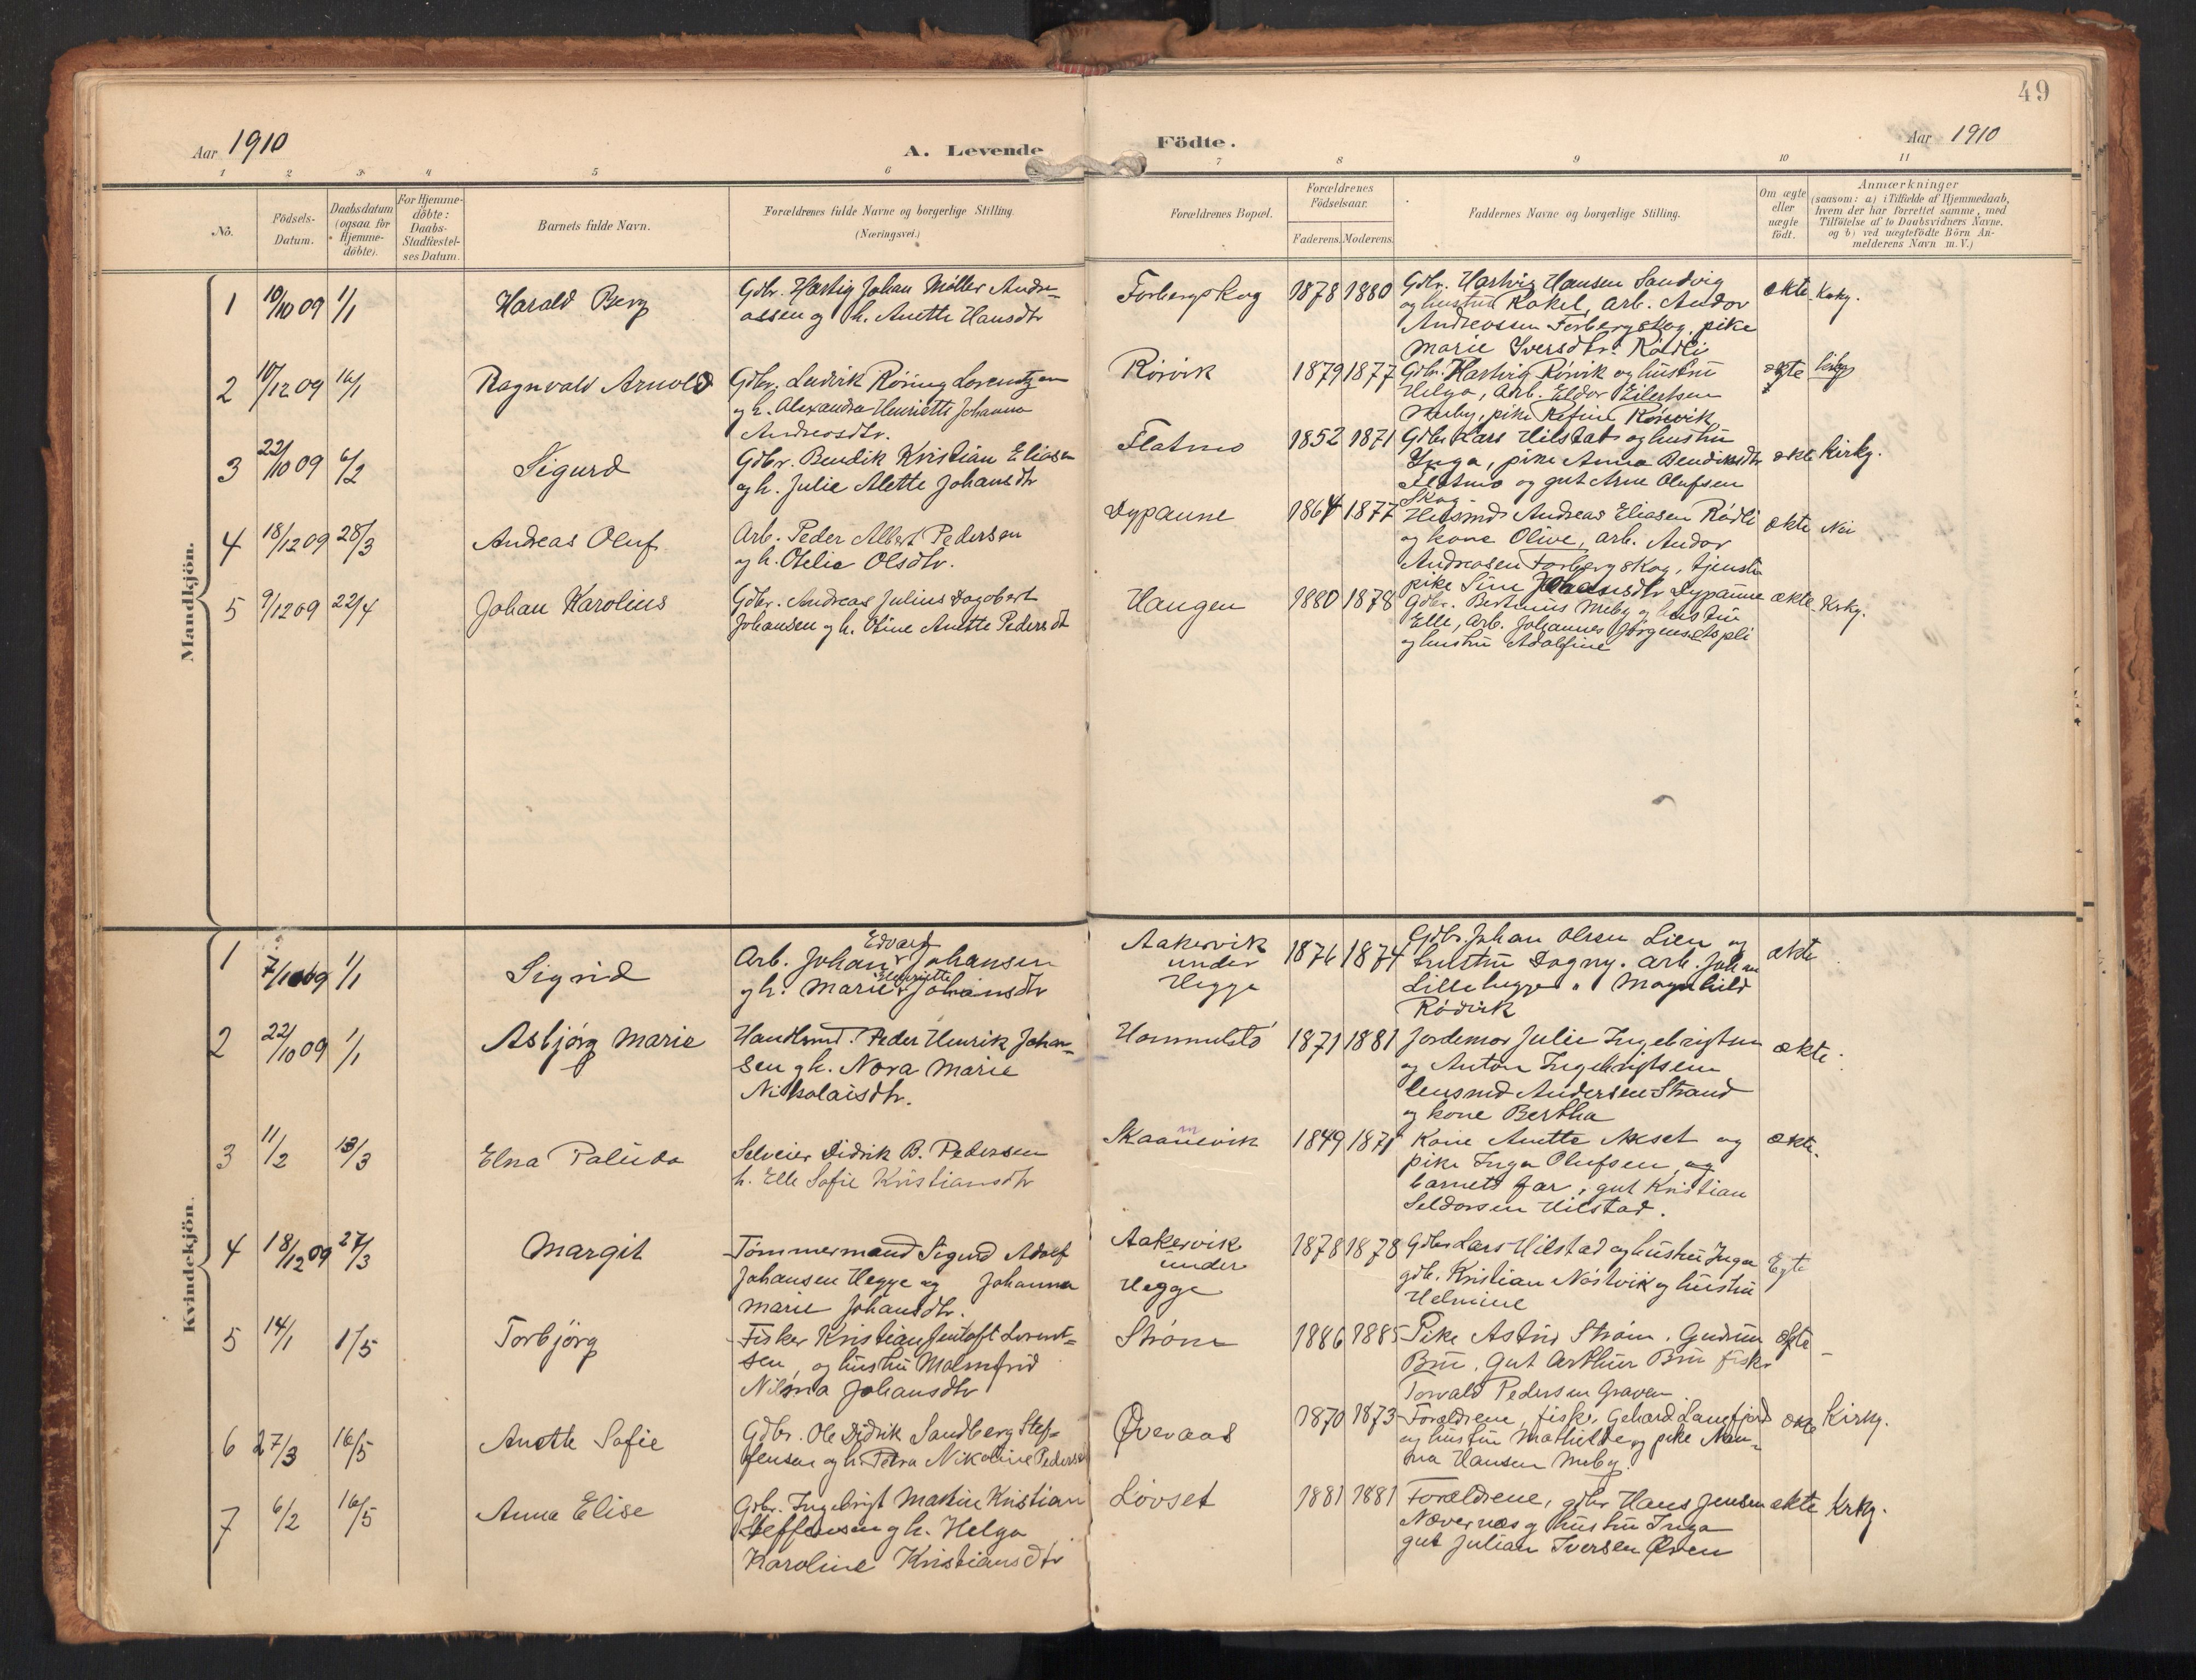 49
Aar 1910
A. Levende
Födte.
Aar 1910
1 2 3 4 5 6 7 8 9 10 11
No.
Födsels-Datum.
Daabsdatum (ogsaa for Hjemme-döbte).
For Hjemme-döbte: Daabs-Stadfæstel-ses Datum.
Barnets fulde Navn.
Forældrenes fulde Navne og borgerlige Stilling (Næringsvei.)
Forældrenes Bopæl.
Forældrenes Födselsaar.
Faderens. Moderens.
Faddernes Navne og borgerlige Stilling.
Om ægte eller uægte födt.
Anmærkninger
(saasom: a) i Tilfælde af Hjemmedaab, hvem der har forrettet samme, med Tilföielse af to Daabsvidners Navne. og b) ved uægtefödte Börn An-melderens Navn m. V.)
Mandkjön.
1 10/10 09 1/1 Harald Berg
Gdbr. Hartig Johan Möller Andre-
assen og h. Anette Hansdtr
Forbergskog 1878 1880
Gdbr. Hartvig Hansen Sandvig
og hustru Rakel, arb. Andor
Andreassen Forbergskog, pike
Marie Iversdtr. Rödli
ekte Krkg.
2 10/12 09 16/1 Ragnvald Arnold
Gdbr. Ludvik Röring Lorentzen
og h. Alexandra Henriette Johanna
Andreasdtr.
Rörvik 1879 1877
Gdbr. Hartvig Rörvik og hustru
Helga, Arb. Eldor Eilertsen
Meby, pike Refine Rörvik
ægte
3 22/10 09 6/2 Sigurd
Gdbr. Bendik Kristian Eliasen
og h. Julie Alette Johansdtr
Flatmo 1852 1871
Gdbr Lars Hilstad og hustru
Inga, pike Anna Bendiksdtr
Flatmo og gut Arne Olufsen
Skog.
ekte Kirkg.
4 18/12 09 28/3 Andreas Oluf
Arb. Peder Albert Pedersen
og h. Otelie Olsdtr.
Dypaune 1864 1877
Husmd Andreas Eliasen Rödli
og kone Olive, arb. Andor
Andreasen Forbergskog, tjeneste
pike Sine Johansdtr Dypaune
ekte Nei
5 9/12 09 22/4 Johan Karolius
Gdbr. Andreas Julius Dagobert
Johansen og h. Oline Anette Pedersdt
Haugen 1880 1878
Gdbr. Bertinus Meby og hustru
Elle, Arb. Johannes Jörgens. Aspli
og hustru Adolfine
ekte Krkg.
Kvindekjön.
1 7/10 09 1/1 Sigrid
Edvard
Arb. Johan Johansen
Henriette
og h. Marie Johansdtr
Aakervik
under
Hegge
1876 1874
Gdbr. Johan Olsen Lien og
hustru Dagny. Arb. Johan
Lillehegge " Magnhild
Rödvik
ekte
2 22/10 09 1/1 Asbjörg Marie
Handlsmd. Peder Henrik Johan-
sen og h. Nora Marie
Nikolaisdtr.
Hammelstö 1871 1881
Jordemor Julie Ingebrigtsen
og Anton Ingebrigtsen
lensmd Andersen Strand
og kone Bertha
ekte.
3 11/2 13/3 Elna Palida
Selveier Didrik B. Pedersen
h. Elle Sofie Kristiansdtr
Skaanevik 1849 1871
Kone Anette Aset og
pike Inga Olufsen og
barnets far, gut Kristian
Seldorsen Hilstad.
ekte.
4 18/12 09 27/3 Margit
Tömmermand Sigurd Adolf
Johansen Hegge og Johanna
Marie Johansdtr.
Aakervik
under
Hegge
1878 1878
Gdbr Lars Hilstad og hustru Inga
gdb. Kristian Nöstvik og hustru
Helmine
Egte
5 14/1 1/5 Torbjörg
Fisker Kristian Jentoft Lorent-
sen og hustru Malmfrid
Nilsina Johansdtr
Ström 1886 1885
Pike Astrid Ström. Gudrun
Bru. Gut Arthur Bru fisker
Torvald Pedersen Graven
Egte
6 27/3 16/5 Anette Sofie
Gdbr. Ole Didrik Sandberg Stef-
fensen og h. Petra Nikoline Pedersd
Øveraas 1870 1873
Forældrene, fisker Gehard Langfjord
og hustru Mathilde og pike Nan-
na Hansen Meby.
ekte Kirkg.
7 6/2 16/5 Anna Elise
Gdbr. Ingebrigt Martin Kristian
Steffensen og h. Helga
Karoline Kristiansdtr
Lövset 1881 1881
Forældrene, gdbr Hans Jensen
Nævernes og hustru Inga
gut Julian Iversen Øien
ekte Krkg.